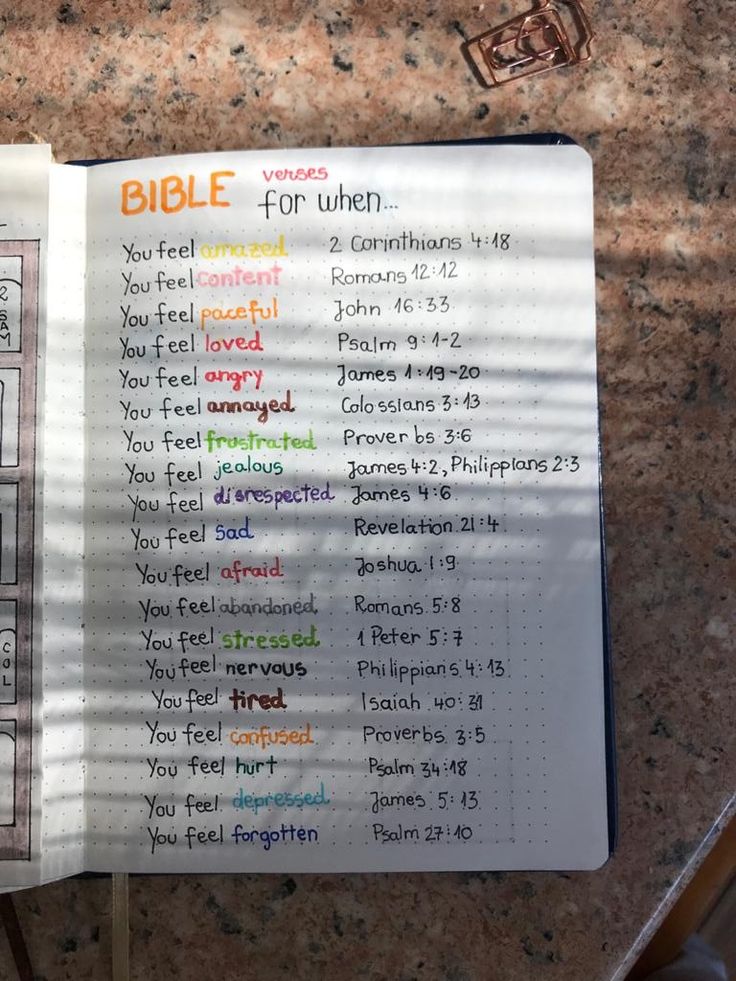 BIBLE verses
for when...
You feel amazed 2 Corinthians 4:18
You feel content Romans 12:12
You feel paceful John 16:33
You feel loved Psalm 9:1-2
You feel angry James 1:19-20
You feel annayed Colossians 3:13
You feel frustrated Proverbs 3:6
You feel jealous James 4:2, Philippians 2:3
You feel disrespected James 4:6
You feel sad Revelation 21:4
You feel afraid Joshua 1:9
You feel abandoned Romans 5:8
You feel stressed 1 Peter 5:7
You feel nervous Philippians 4:13
You feel tired Isaiah 40:31
You feel confused Proverbs 3:5
You feel hurt Psalm 34:18
You feel depressed James 5:13
You feel forgotten Psalm 27:10
2 SAM
COL